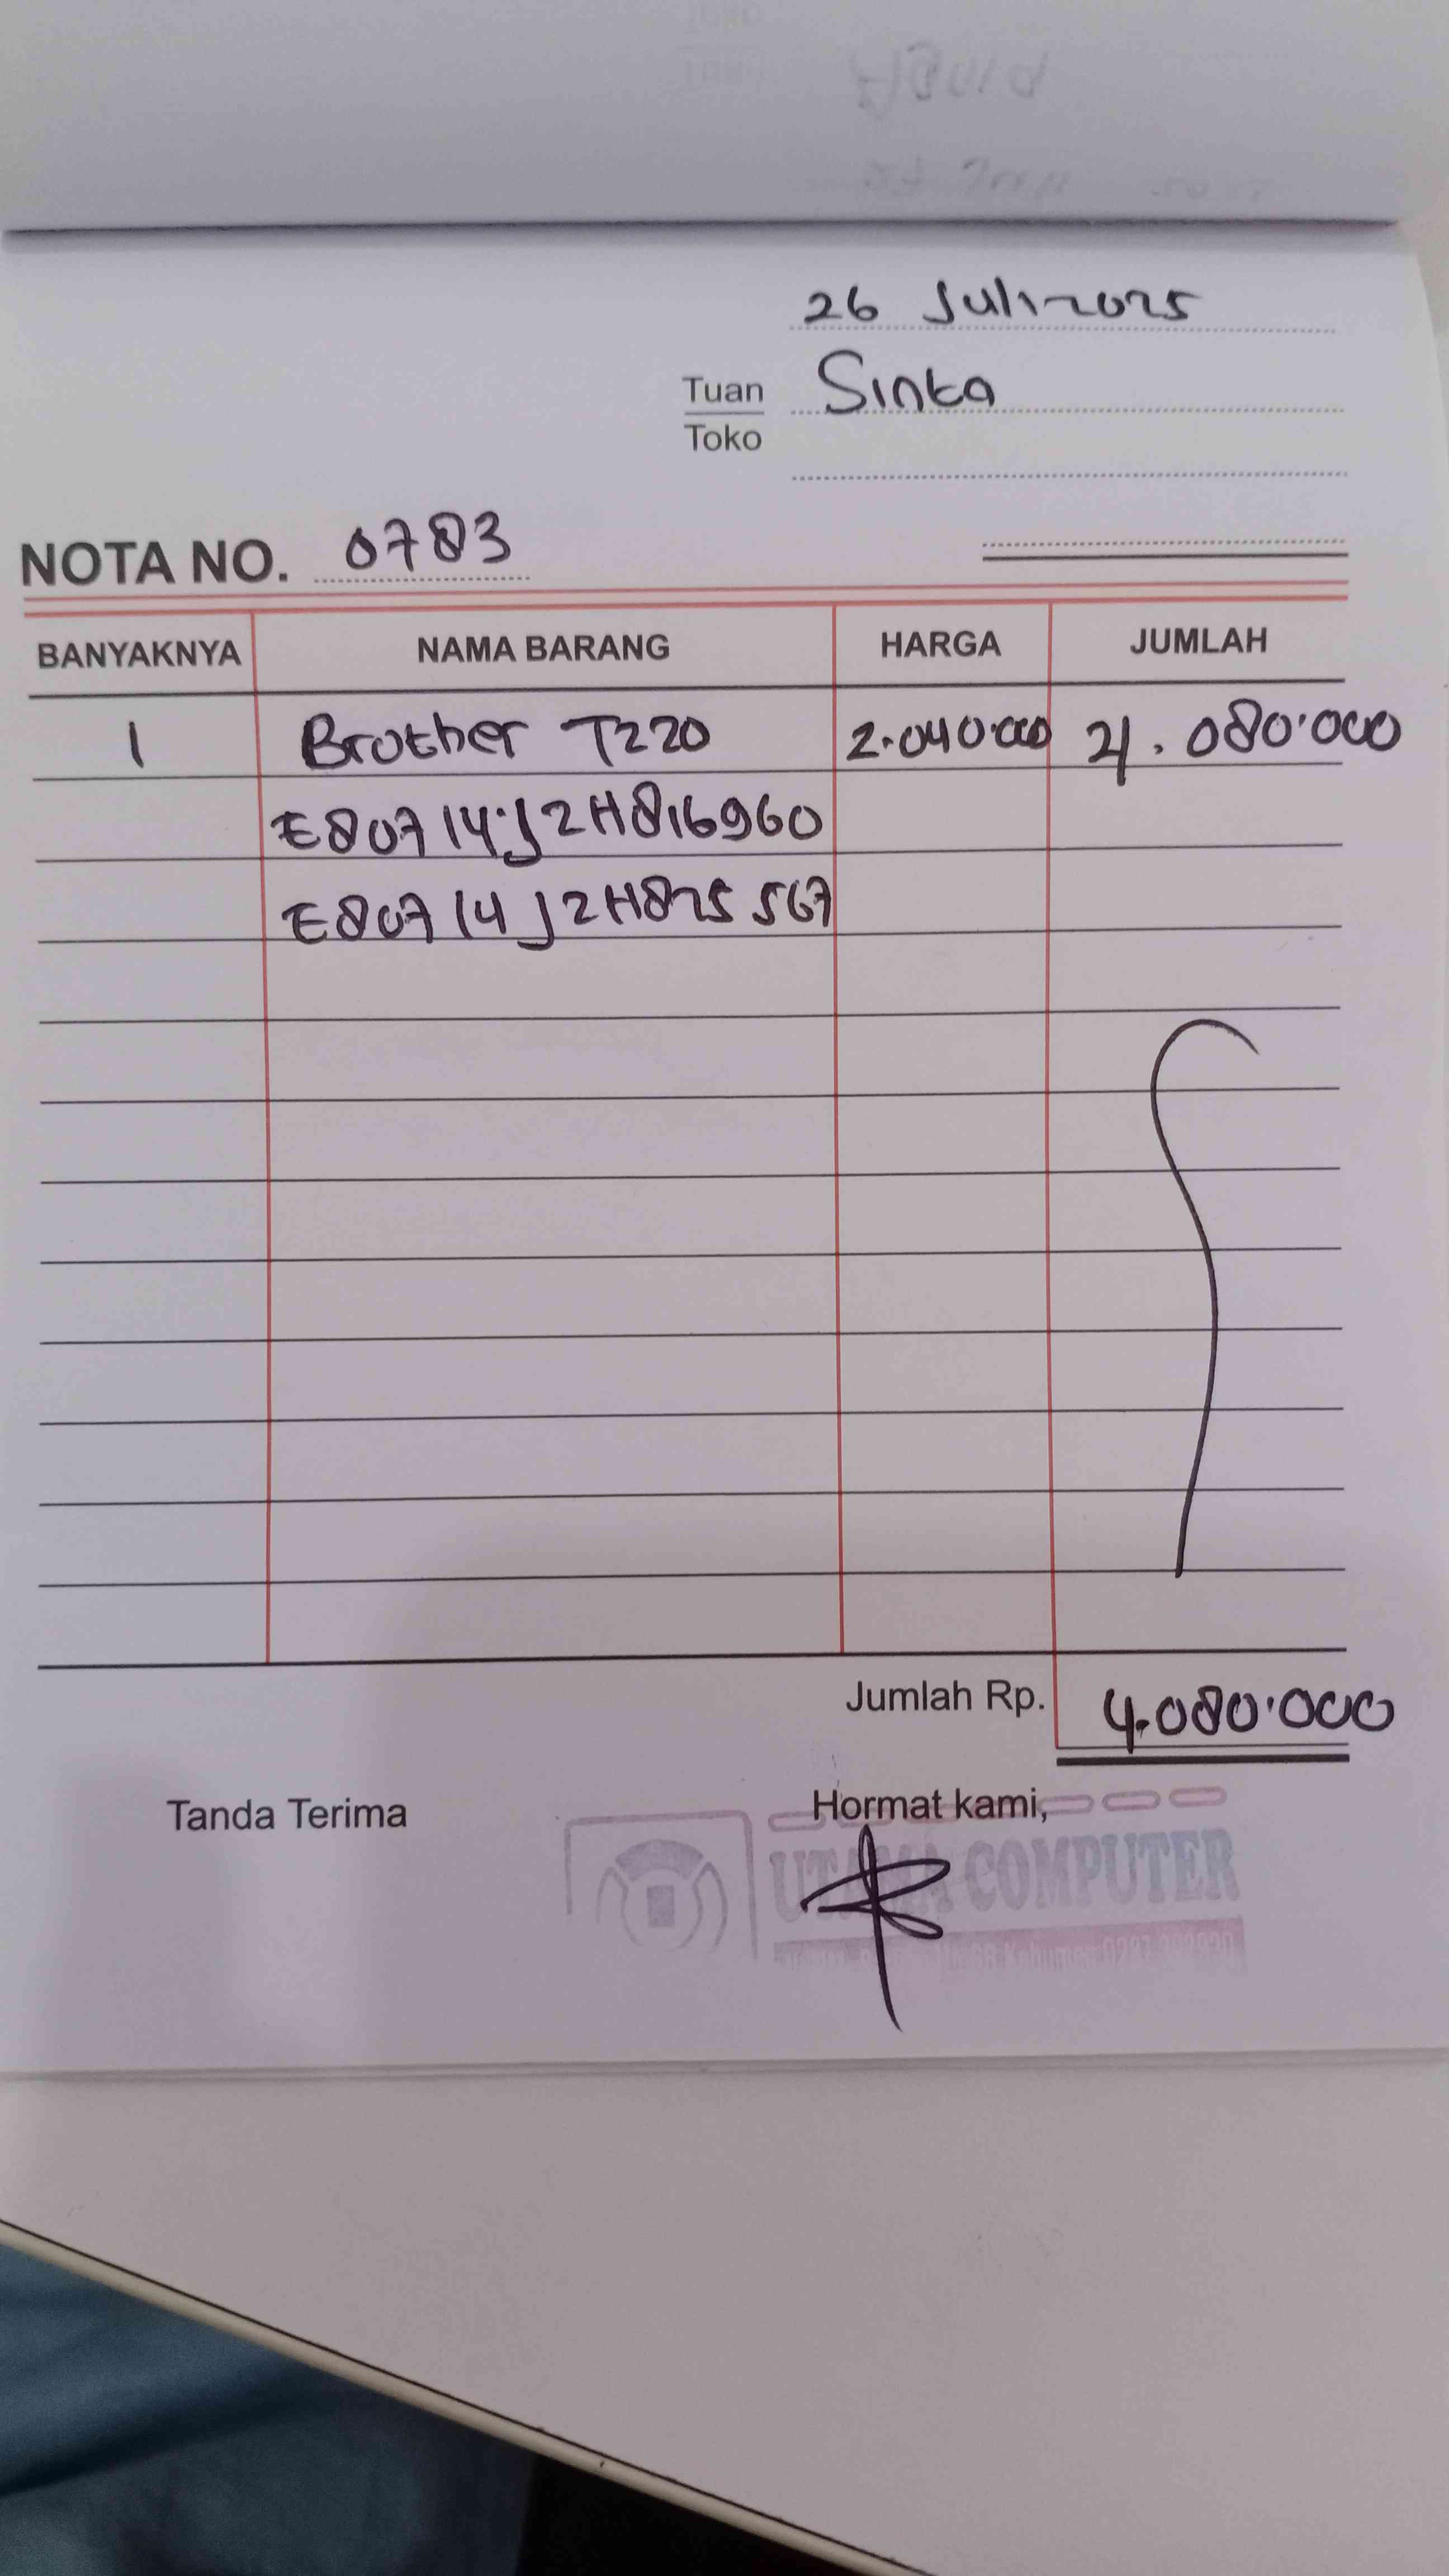 26 Juli 2025
Tuan Sinta
Toko
NOTA NO. 0783
BANYAKNYA NAMA BARANG HARGA JUMLAH
1 Brother T220 2.040.000 4.080.000
E80714J2H816960
E80714J2H825567
Jumlah Rp. 4.080.000
Tanda Terima Hormat kami,
UTAMA COMPUTER
Kebumen